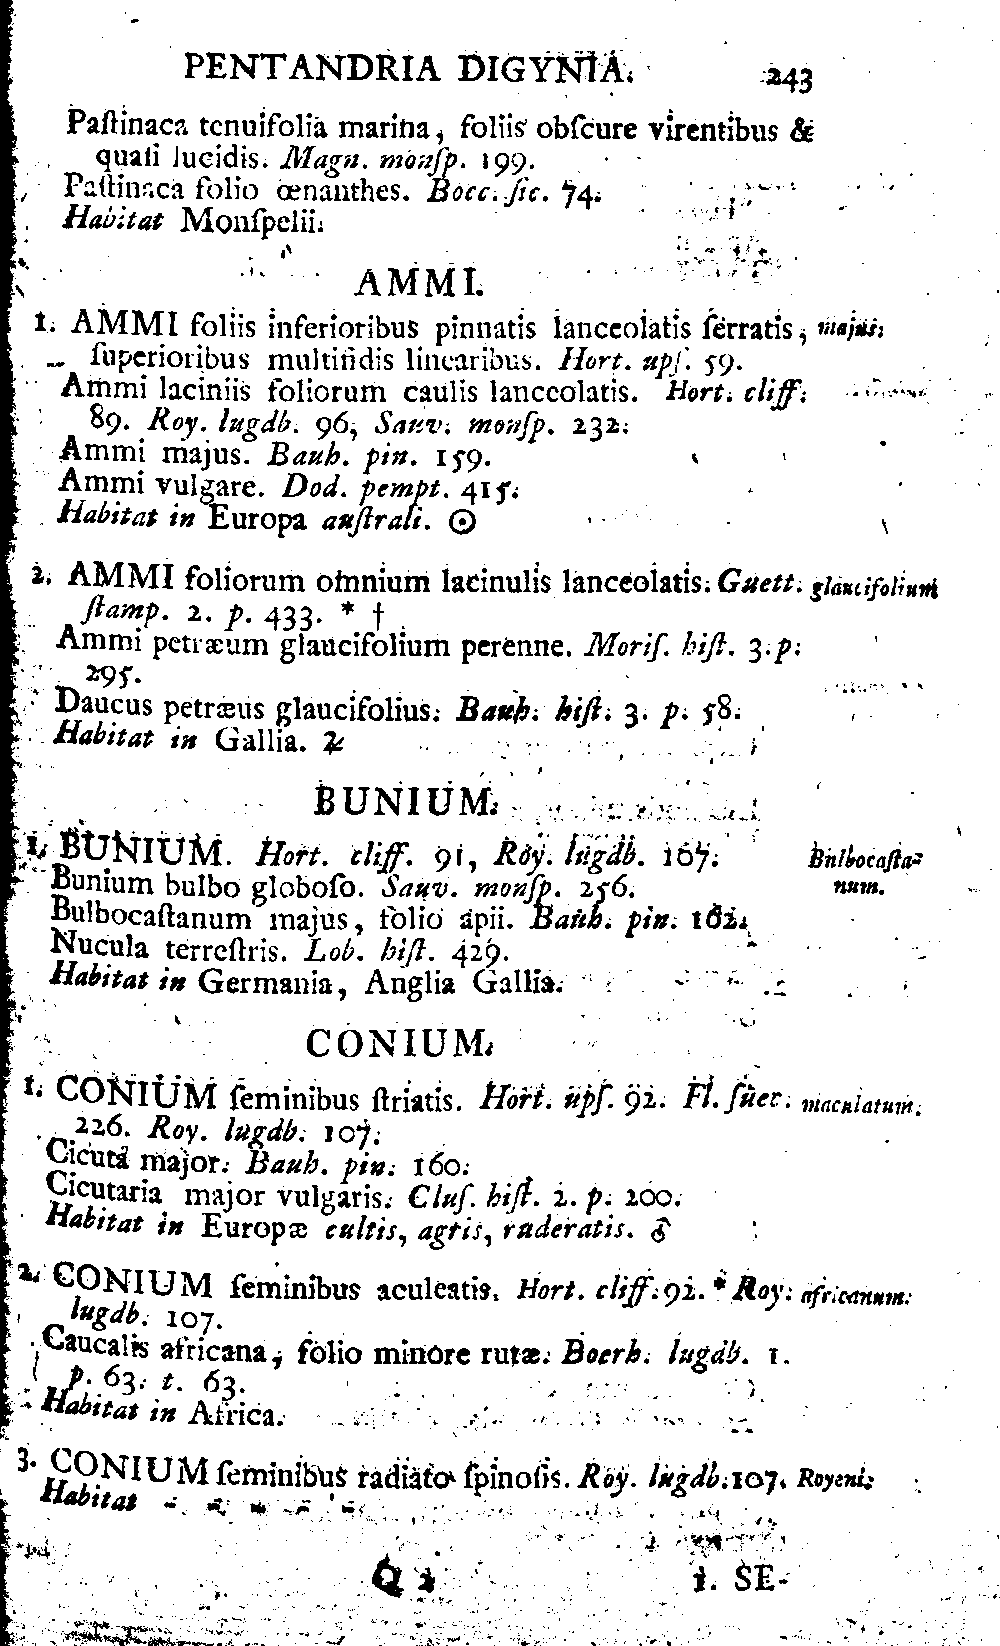 PENTANDRIA DIGYNIA. 243
Paſtinaca tenuifolia marina, foliis obſcure virentibus &
quaſi lucidis. Magn. monſp. 199.
Paſtinaca folio œnanthes. Bocc. ſic. 74.
Habitat Monſpelii.
AMMI.
1. AMMI foliis inferioribus pinnatis lanceolatis ſerratis, majus.
ſuperioribus multifidis linearibus. Hort. upſ. 59.
Ammi laciniis foliorum caulis lanceolatis. Hort. cliff.
89. Roy. lugdb. 96, Sauv. monſp. 232.
Ammi majus. Bauh. pin. 159.
Ammi vulgare. Dod. pempt. 415.
Habitat in Europa auſtrali. ☉
2. AMMI foliorum omnium lacinulis lanceolatis. Guett. glaucifolium
ſtamp. 2. p. 433. * †
Ammi petræum glaucifolium perenne. Moriſ. hiſt. 3. p.
295.
Daucus petræus glaucifolius. Bauh. hiſt. 3. p. 58.
Habitat in Gallia. ♃
BUNIUM.
1. BUNIUM. Hort. cliff. 91, Roy. lugdb. 107. Bulbocaſta-
Bunium bulbo globoſo. Sauv. monſp. 256. num.
Bulbocaſtanum majus, folio apii. Bauh. pin. 162.
Nucula terreſtris. Lob. hiſt. 429.
Habitat in Germania, Anglia Gallia.
CONIUM.
1. CONIUM ſeminibus ſtriatis. Hort. upſ. 92. Fl. ſuec. maculatum.
226. Roy. lugdb. 107.
Cicuta major. Bauh. pin. 160.
Cicutaria major vulgaris. Cluſ. hiſt. 2. p. 200.
Habitat in Europæ cultis, agris, ruderatis. ♂
2. CONIUM ſeminibus aculeatis. Hort. cliff. 92. * Roy. africanum.
lugdb. 107.
Caucalis africana, folio minore rutæ. Boerh. lugdb. 1.
p. 63. t. 63.
Habitat in Africa.
3. CONIUM ſeminibus radiato ſpinoſis. Roy. lugdb. 107. Royeni.
Habitat - - - -
Q 2 1. SE-